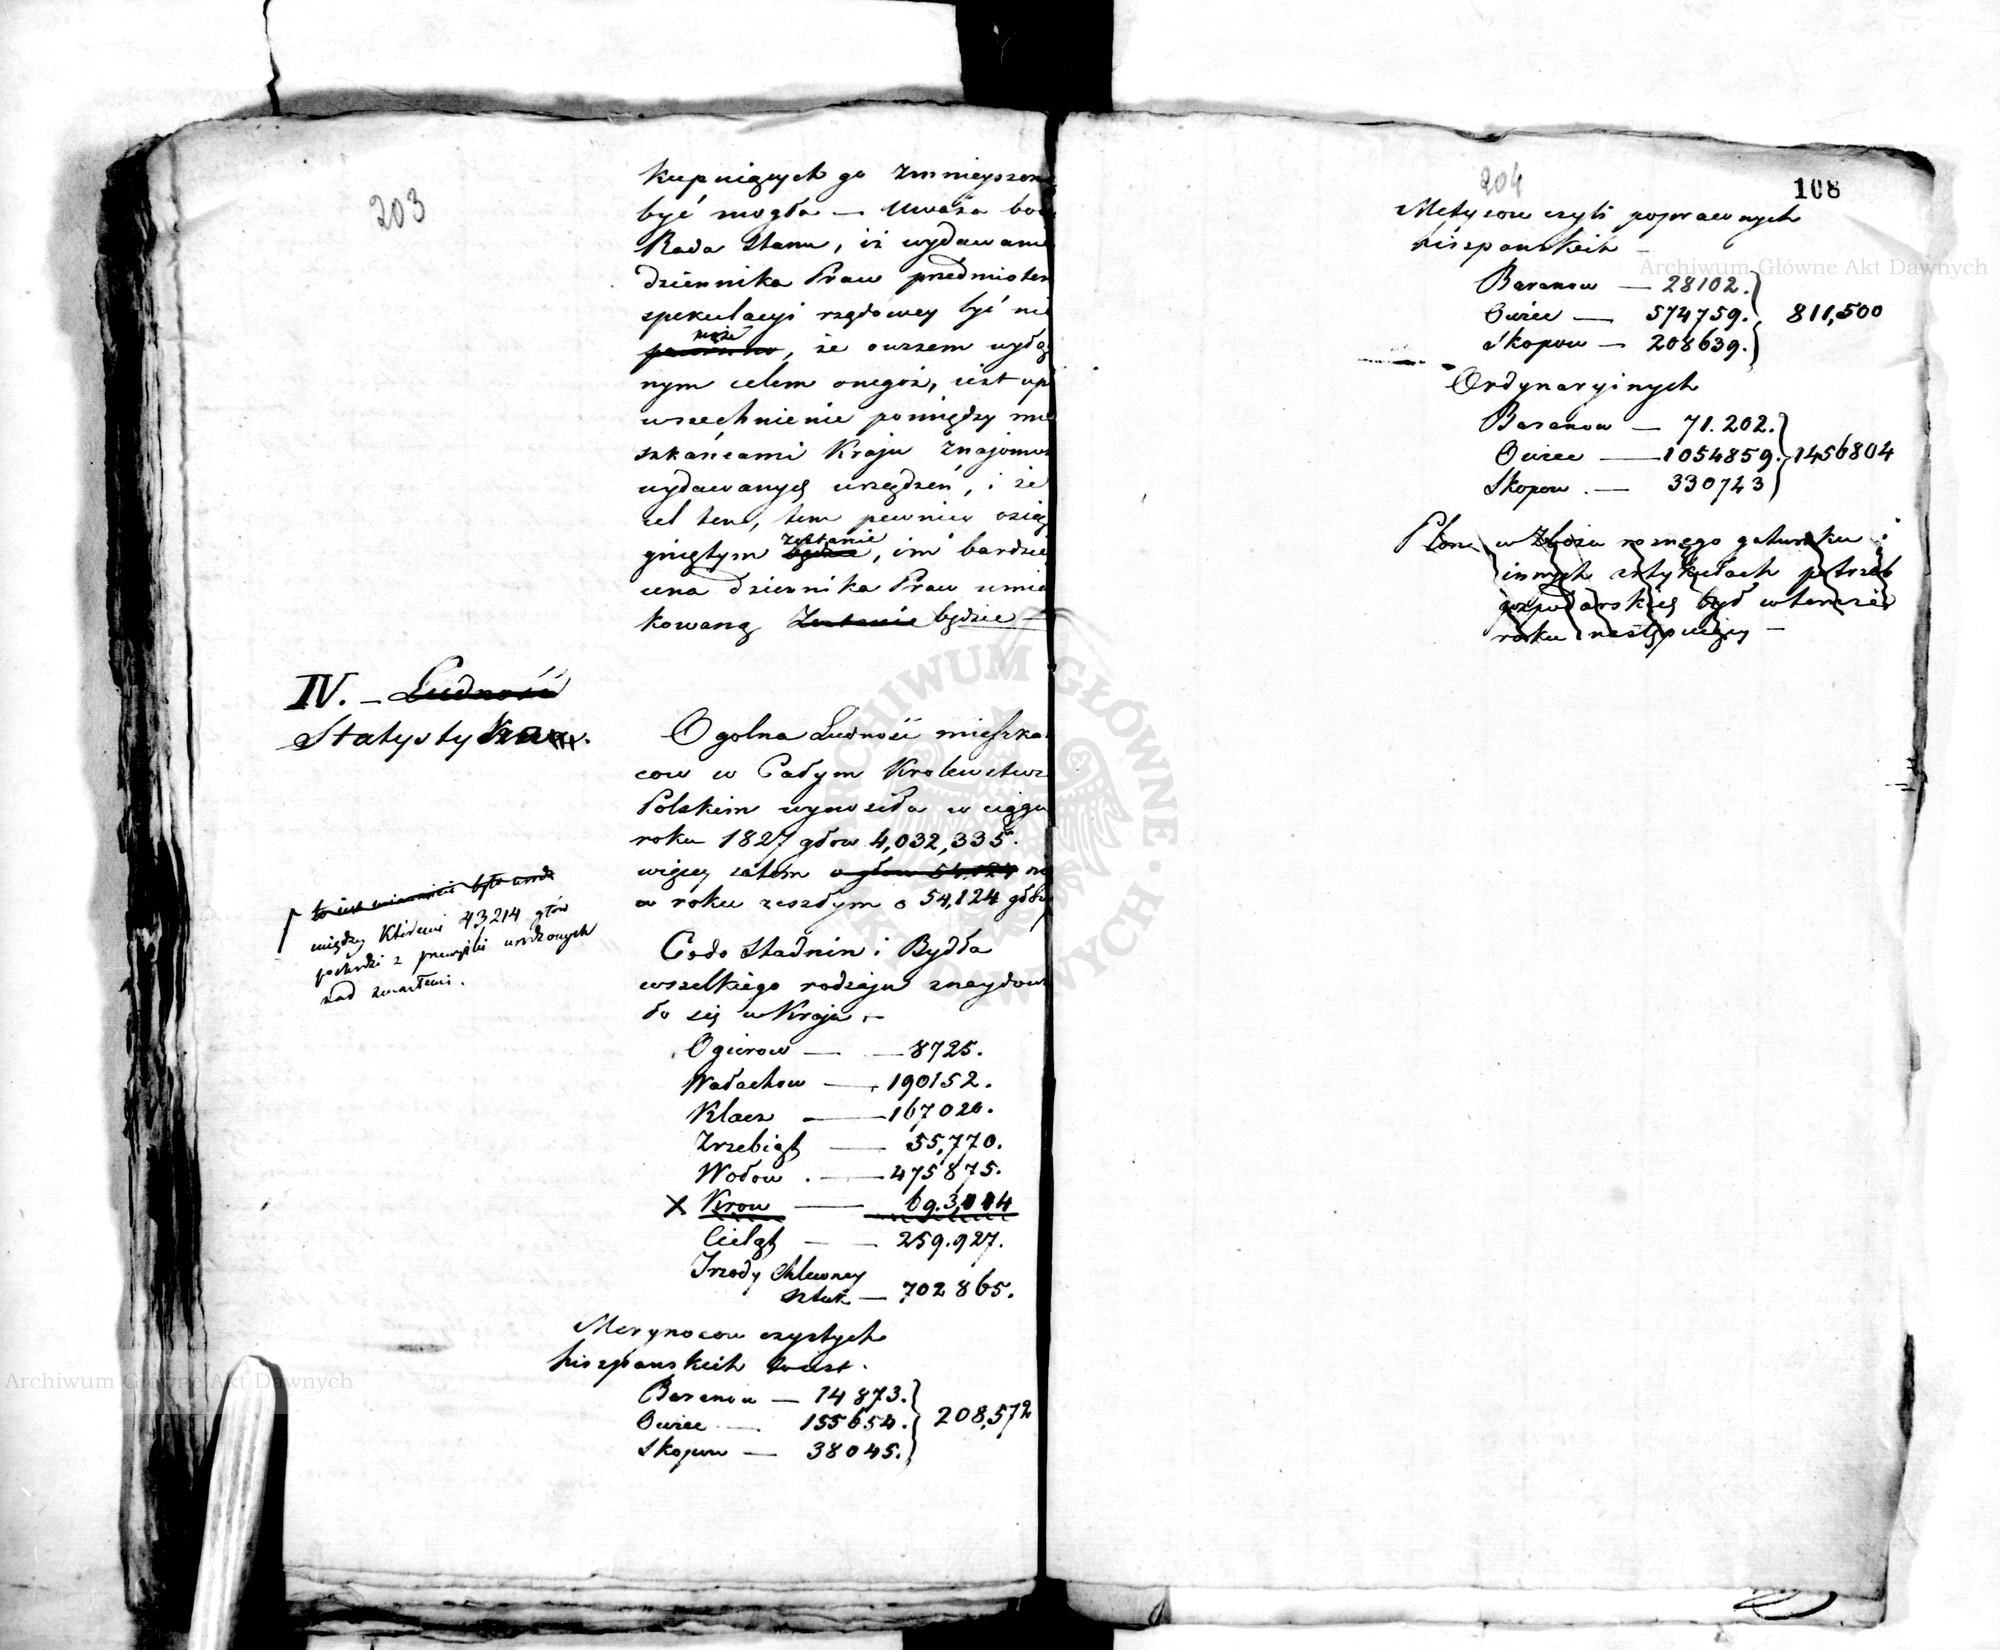 203
kupuiących go zmnieyszon
być mogła — Uważa bo
Rada Stanu, iż wydawani
dziennika Praw przedmiotem
spekulacyi rządowey być ni
może
powinno, że owszem wyłą
nym celem onegoż, iest up
wszechnienie pomiędzy mie
szkańcami Kraju znajomoś
wydawanych urządzeń, i że
cel ten, tem pewniey osią
zostanie
gniętym będzie, im bardzie
cena dziennika Praw umia
kowaną zostanie będzie —
IV. — Ludność
Statystyka.
Ogolna Ludność mieszka
cow w Całym Krolewstwie
Polskim wynosiła w ciągu
roku 1827 głow 4,032,335.
więcy zatem o głow 54,124 ni
w roku zeszłym o 54,124 głów
to iest mianowicie było
między któremi 43,214 głów
pochodzi z przewyżki urodzonych
nad zmarłemi.
Codo Stadnin i Bydła
wszelkiego rodzaju znaydow
ło się w Kraju. —
Ogierow — — 8725.
Wałachow — 190152.
Klacz — 167020.
Zrzebiąt — 55,770.
Wołow. — 475875.
X Krow — 69.3,114
Cieląt — — 259.927.
Trzody Chlewney
sztuk — 702865.
Merynosow czystych
hiszpanskich
Baranow — 14873.
Owiec — 155654. 208,572
Skopow — 38045.
204
108
Metysow czyli poprawnych
hiszpanskich —
Baranow — 28102.
Owiec — 574759. 811,500
Skopow — 208639.
Ordynaryinych
Baranow — 71.202.
Owiec — 1054859. 1456804
Skopow. — 330743
Plon w Zbożu roznego gatunku i
innych artykułach potrzeb
gospodarskiey był w temże
roku następuiący —
Archiwum Główne Akt Dawnych
Archiwum Główne Akt Dawnych
ARCHIWUM GŁÓWNE AKT DAWNYCH